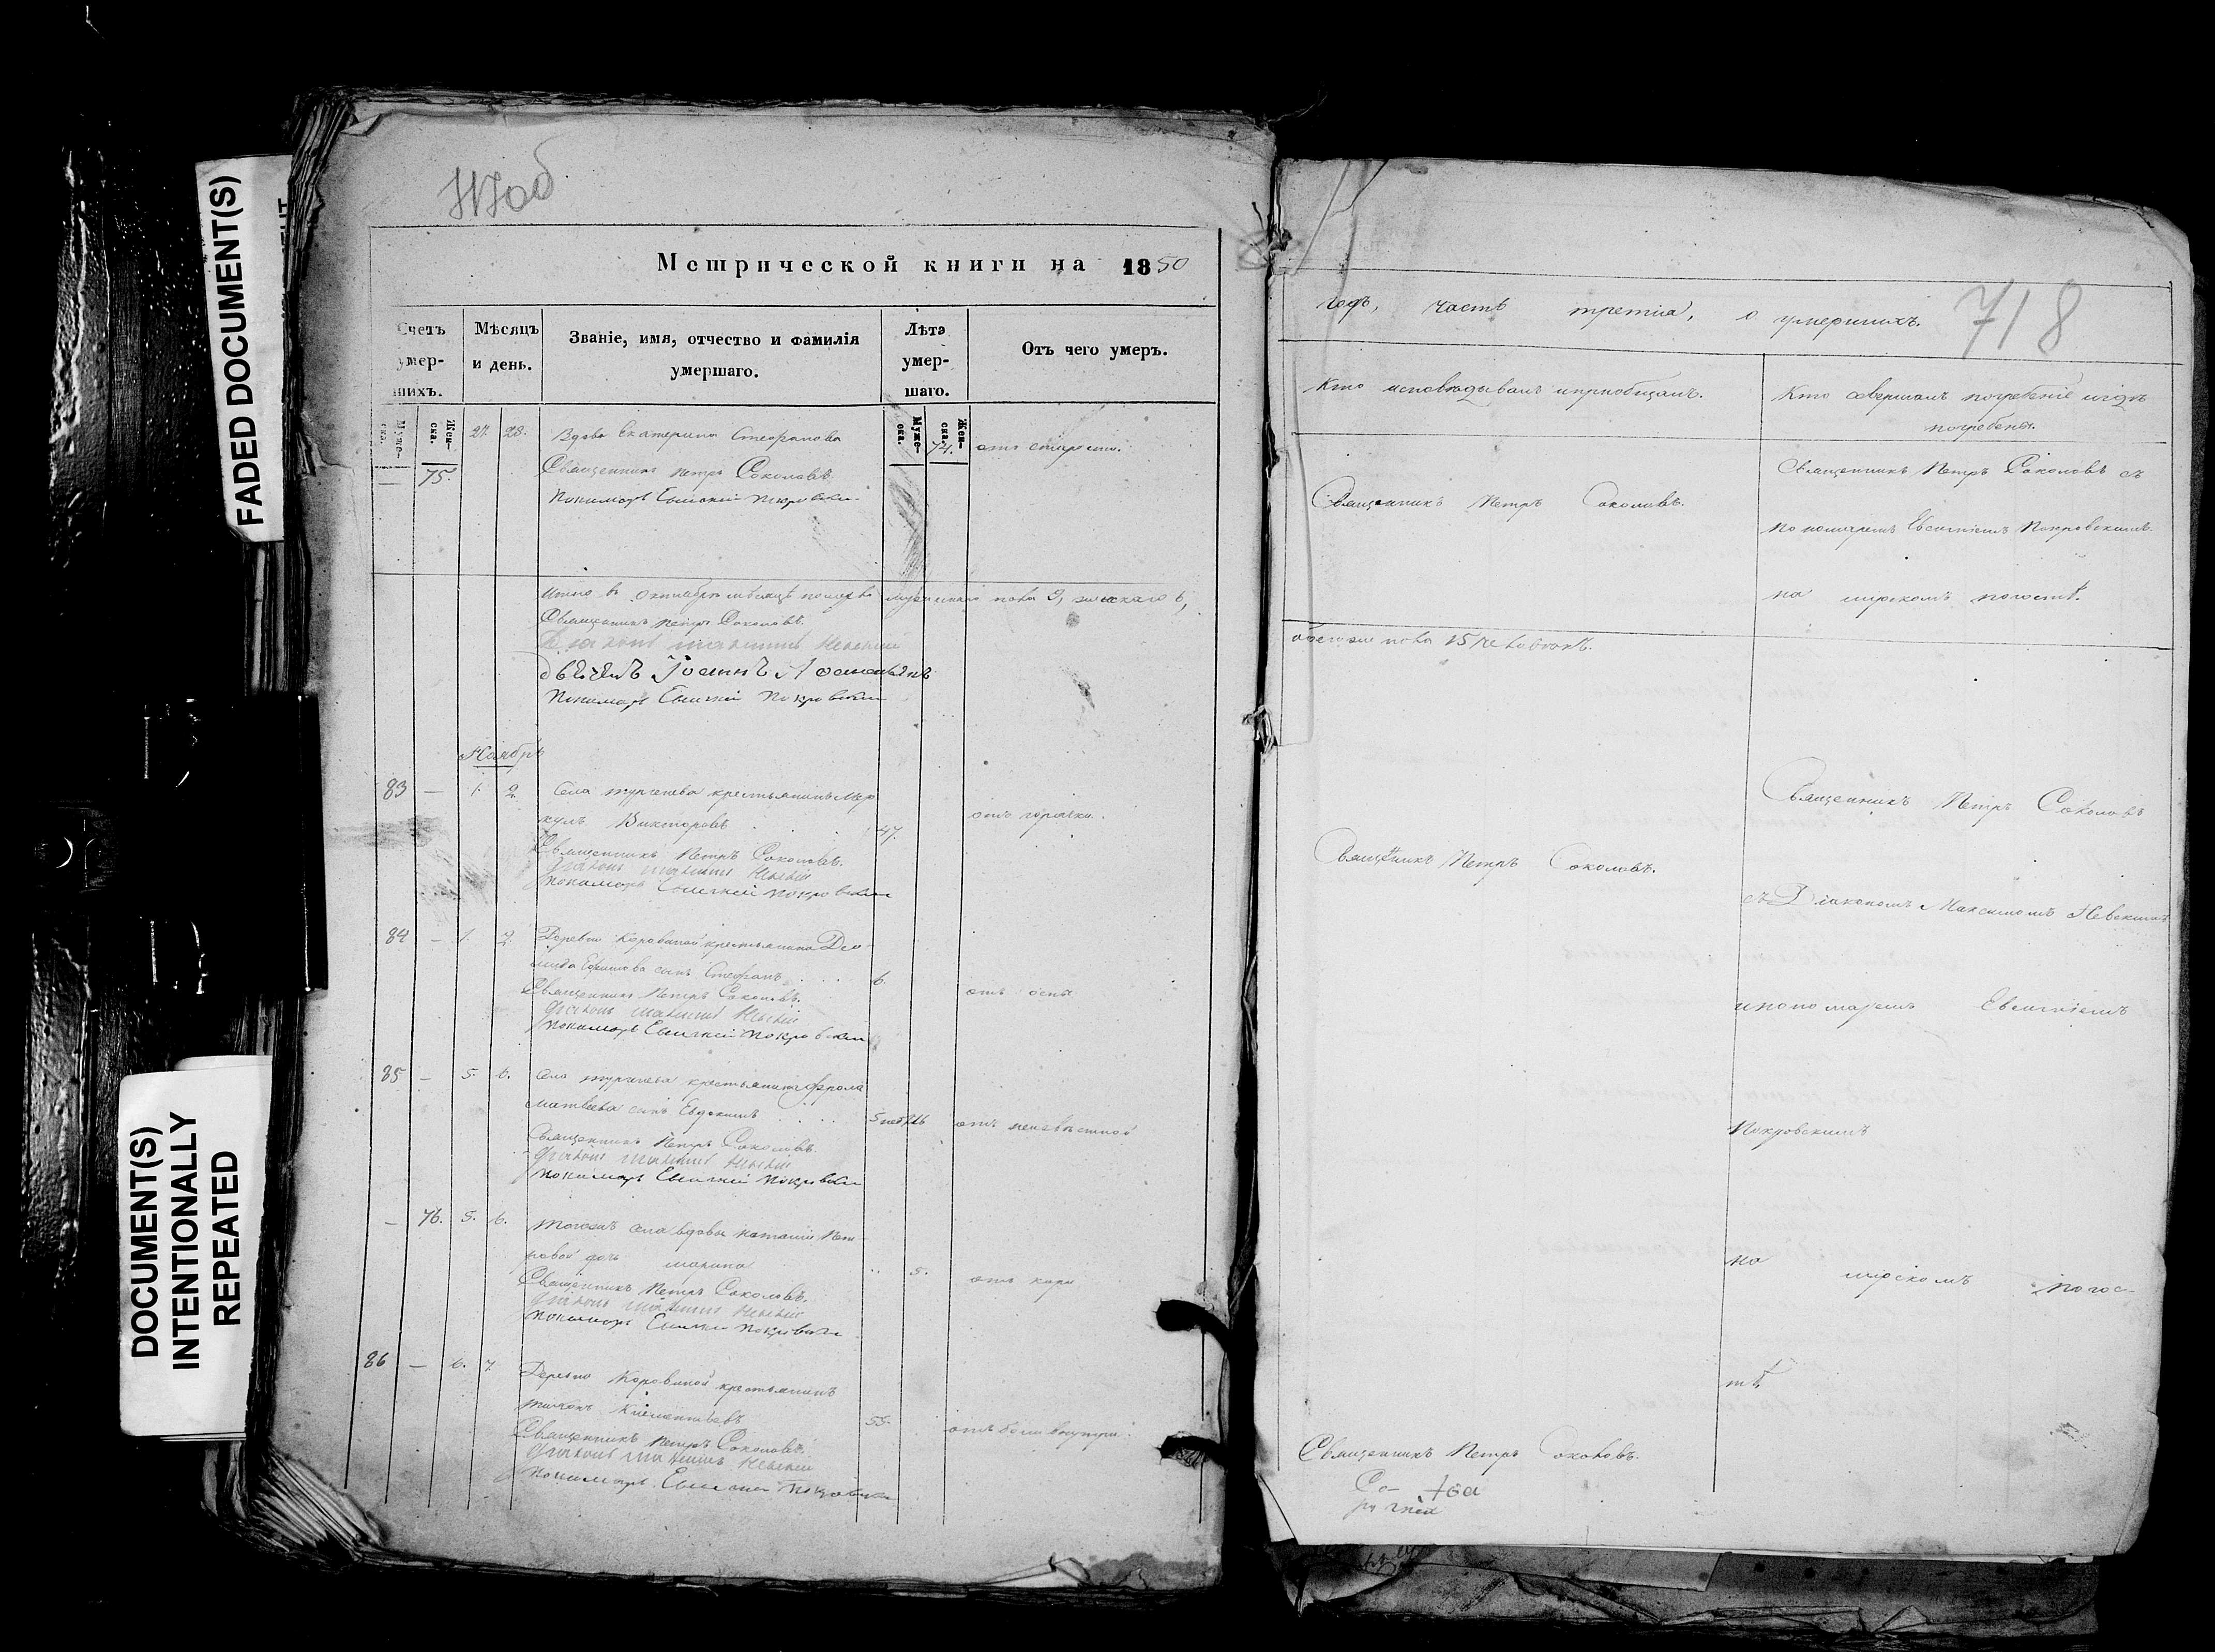 FADED DOCUMENT(S)
DOCUMENT(S)
INTENTIONALLY
REPEATED
Метрической книги на 1850
Счетъ умер-шихъ.
Мѣсяцъ и день.
Званіе, имя, отчество и фамилія умершаго.
Лѣта умер-шаго.
Отъ чего умеръ.
Муже-ска.
Жен-ска.
Муже-ска.
Жен-ска.
75. 27. 28. Вдова Екатерина Стефанова 74. отъ старости.
Священникъ Петръ Соколовъ.
Пономарь Евсигній Покровскій
Итого въ Октябрѣ мѣсяцѣ померло мужескаго пола 9, женскаго 6,
Священникъ Петръ Соколовъ.
Діаконъ Максимъ Невскій
Дьячекъ Іоаннъ
Пономарь Евсигній Покровскій
Ноябрь
83 — 1. 2. Села Тургенева крестьянинъ Мер
кулъ Викторовъ 47. отъ горячки.
Священникъ Петръ Соколовъ.
Діаконъ Максимъ Невскій
Пономарь Евсигній Покровскій
84 — 1. 2. Деревни Коровиной крестьянина Дио-
мида Ефимова сынъ Стефанъ 6. отъ оспы
Священникъ Петръ Соколовъ.
Діаконъ Максимъ Невскій
Пономарь Евсигній Покровскій
85 — 5. 6. Села Тургенева крестьянина Фрола
Матвѣева сынъ Евдокимъ 5 недѣль отъ неизвѣстной
Священникъ Петръ Соколовъ.
Діаконъ Максимъ Невскій
Пономарь Евсигній Покровскій
— 76. 5. 6. Тогожъ села вдовы Наталіи Пет-
ровой дочь Марина 5. отъ кори
Священникъ Петръ Соколовъ.
Діаконъ Максимъ Невскій
Пономарь Евсигній Покровскій
86 — 6. 7 Деревни Коровиной крестьянинъ
Тихонъ Климентьевъ 55. отъ боли внутри.
Священникъ Петръ Соколовъ.
Діаконъ Максимъ Невскій
Пономарь Евсигній Покровскій
годъ, часть третія, о умершихъ. 718
Кто исповѣдывалъ и пріобщалъ.
Кто совершалъ погребеніе и гдѣ
погребены.
Священникъ Петръ Соколовъ.
Священникъ Петръ Соколовъ съ
пономаремъ Евсигніемъ Покровскимъ
на мірскомъ погостѣ.
обоего пола 15 человѣкъ.
Священникъ Петръ Соколовъ.
Священникъ Петръ Соколовъ
съ Діакономъ Максимомъ Невскимъ
и пономаремъ Евсигніемъ
Покровскимъ
на мірскомъ погос-
тѣ.
Священникъ Петръ Соколовъ.